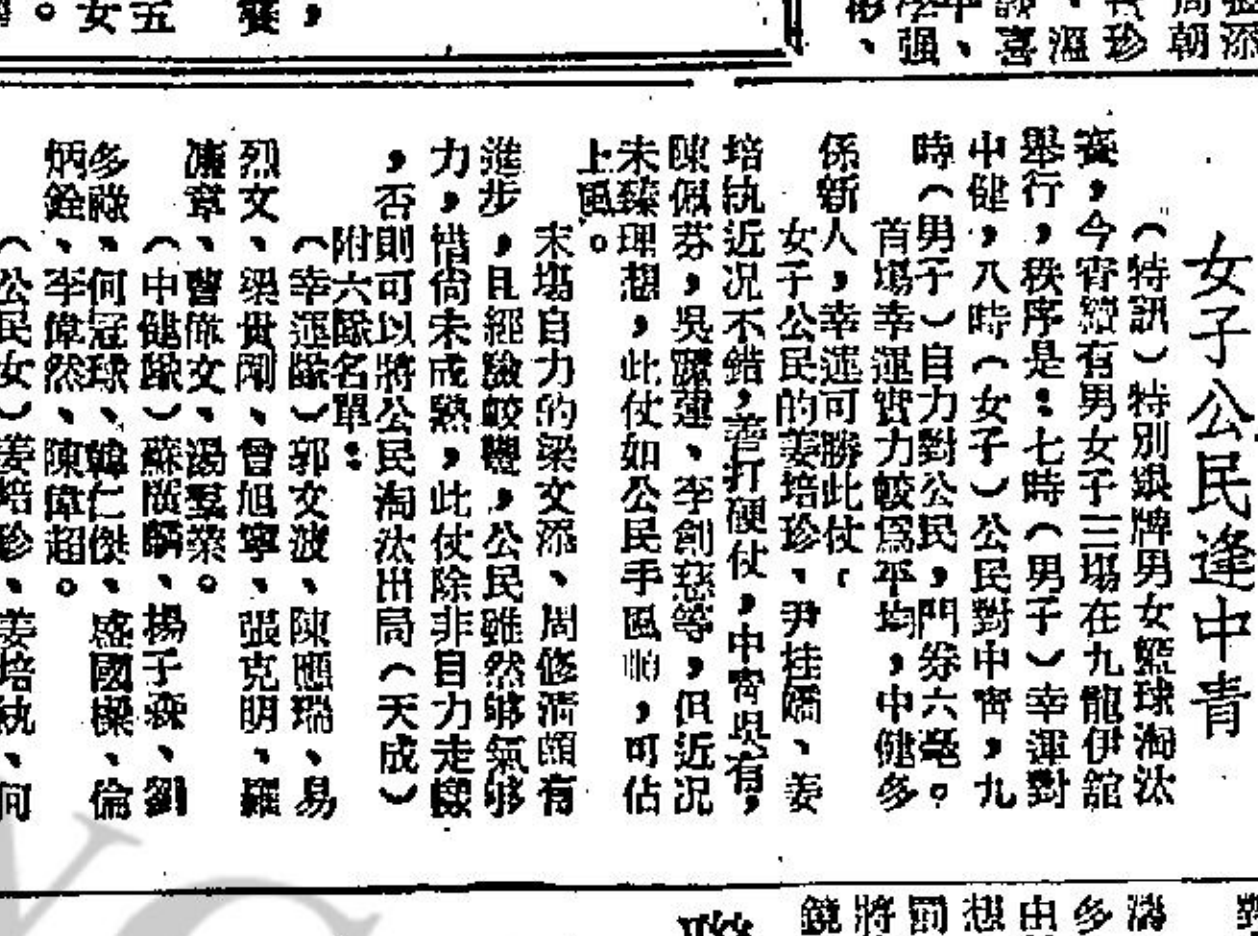 女子公民逢中青
（特訊）特別銀牌男女籃球淘汰
賽，今宵續有男女子三場在九龍伊館
舉行，秩序是：七時（男子）幸運對
中健，八時（女子）公民對中青，九
時（男子）自力對公民，門券六毫。
首場幸運實力較爲平均，中健多
係新人，幸運可勝此仗。
女子公民的姜培珍、尹桂嬌、姜
培紈近况不錯，善打硬仗，中青具有，
陳佩芬，吳麗蓮、李創慈等，但近况
未臻理想，此仗如公民手風順，可佔
上風。
末場自力的梁文添、周修濟頗有
進步，且經驗較豐，公民雖然够氣够
力，惜尚未成熟，此仗除非自力走樣
，否則可以將公民淘汰出局（天成）
附六隊名單：
（幸運隊）郭文波、陳應瑞、易
烈文、梁世剛、曾旭寧、張克明、羅
章、曹 文、湯 榮。
（中健隊）蘇 麟、楊子森、劉
多 、何冠球、韓仁傑、盛國樑、倫
炳銓、李偉然、陳偉超。
（公民女）姜培珍、姜培紈、何
女五
周朝添
强、喜溫珍
鏡將罰想由多